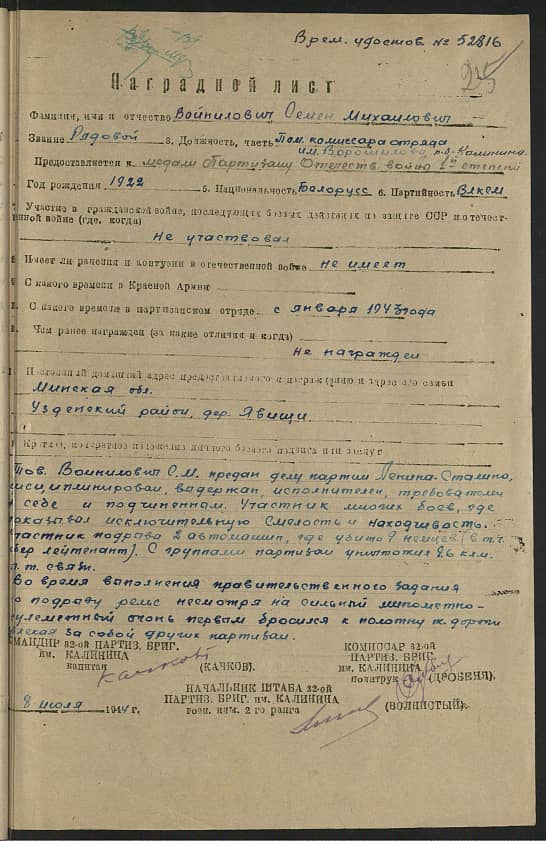 Врем. удостов. № 52816
Наградной лист
Фамилия, имя и отчество Войнилович Семен Михайлович
Звание Рядовой 3. Должность, часть Пом. комиссара отряда
им. Ворошилова, п.б-Калинина
Предоставляется к медали Партизану Отечеств. войны 1й степени
Год рождения 1922 5. Национальность Белорусс 6. Партийность ВЛКСМ
Участие в гражданской войне, последующих боевых действиях по защите ССР и отечест-
венной войне (где, когда)
не участвовал
Имеет ли ранения и контузии в отечественной войне не имеет
С какого времени в Красной Армии
С какого времени в партизанском отряде с января 1943 года
Чем ранее награжден (за какие отличия и когда)
не награжден
Постоянный домашний адрес представляемого к награждению и адрес его семьи
Минская обл.
Узденский район, дер. Явищи.
Краткое, конкретное изложение личного боевого подвига или заслуг
Тов. Войнилович С.М. предан делу партии Ленина-Сталина,
дисциплинирован, выдержан, исполнителен, требователен
к себе и подчиненным. Участник многих боев, где
показывал исключительную смелость и находчивость.
участник подрыва 2 автомашин, где убито 9 немцев (в т.ч.
обер лейтенант). С группами партизан уничтожил 26 клм.
т.т. связи.
Во время выполнения правительственного задания
по подрыву рельс несмотря на сильный минометно-
пулеметный огонь первым бросился к полотну ж. дороги
влекая за собой других партизан.
КОМАНДИР 32-ой ПАРТИЗ. БРИГ.
им. КАЛИНИНА
капитан (КАЧКОВ).
КОМИССАР 32-ой
ПАРТИЗ. БРИГ.
им. КАЛИНИНА
политрук (ДРОБЕНЯ).
НАЧАЛЬНИК ШТАБА 32-ой
ПАРТИЗ. БРИГ. им. КАЛИНИНА
воен. инж. 2 го ранга (ВОЛНИСТЫЙ).
8 июля 1944 г.